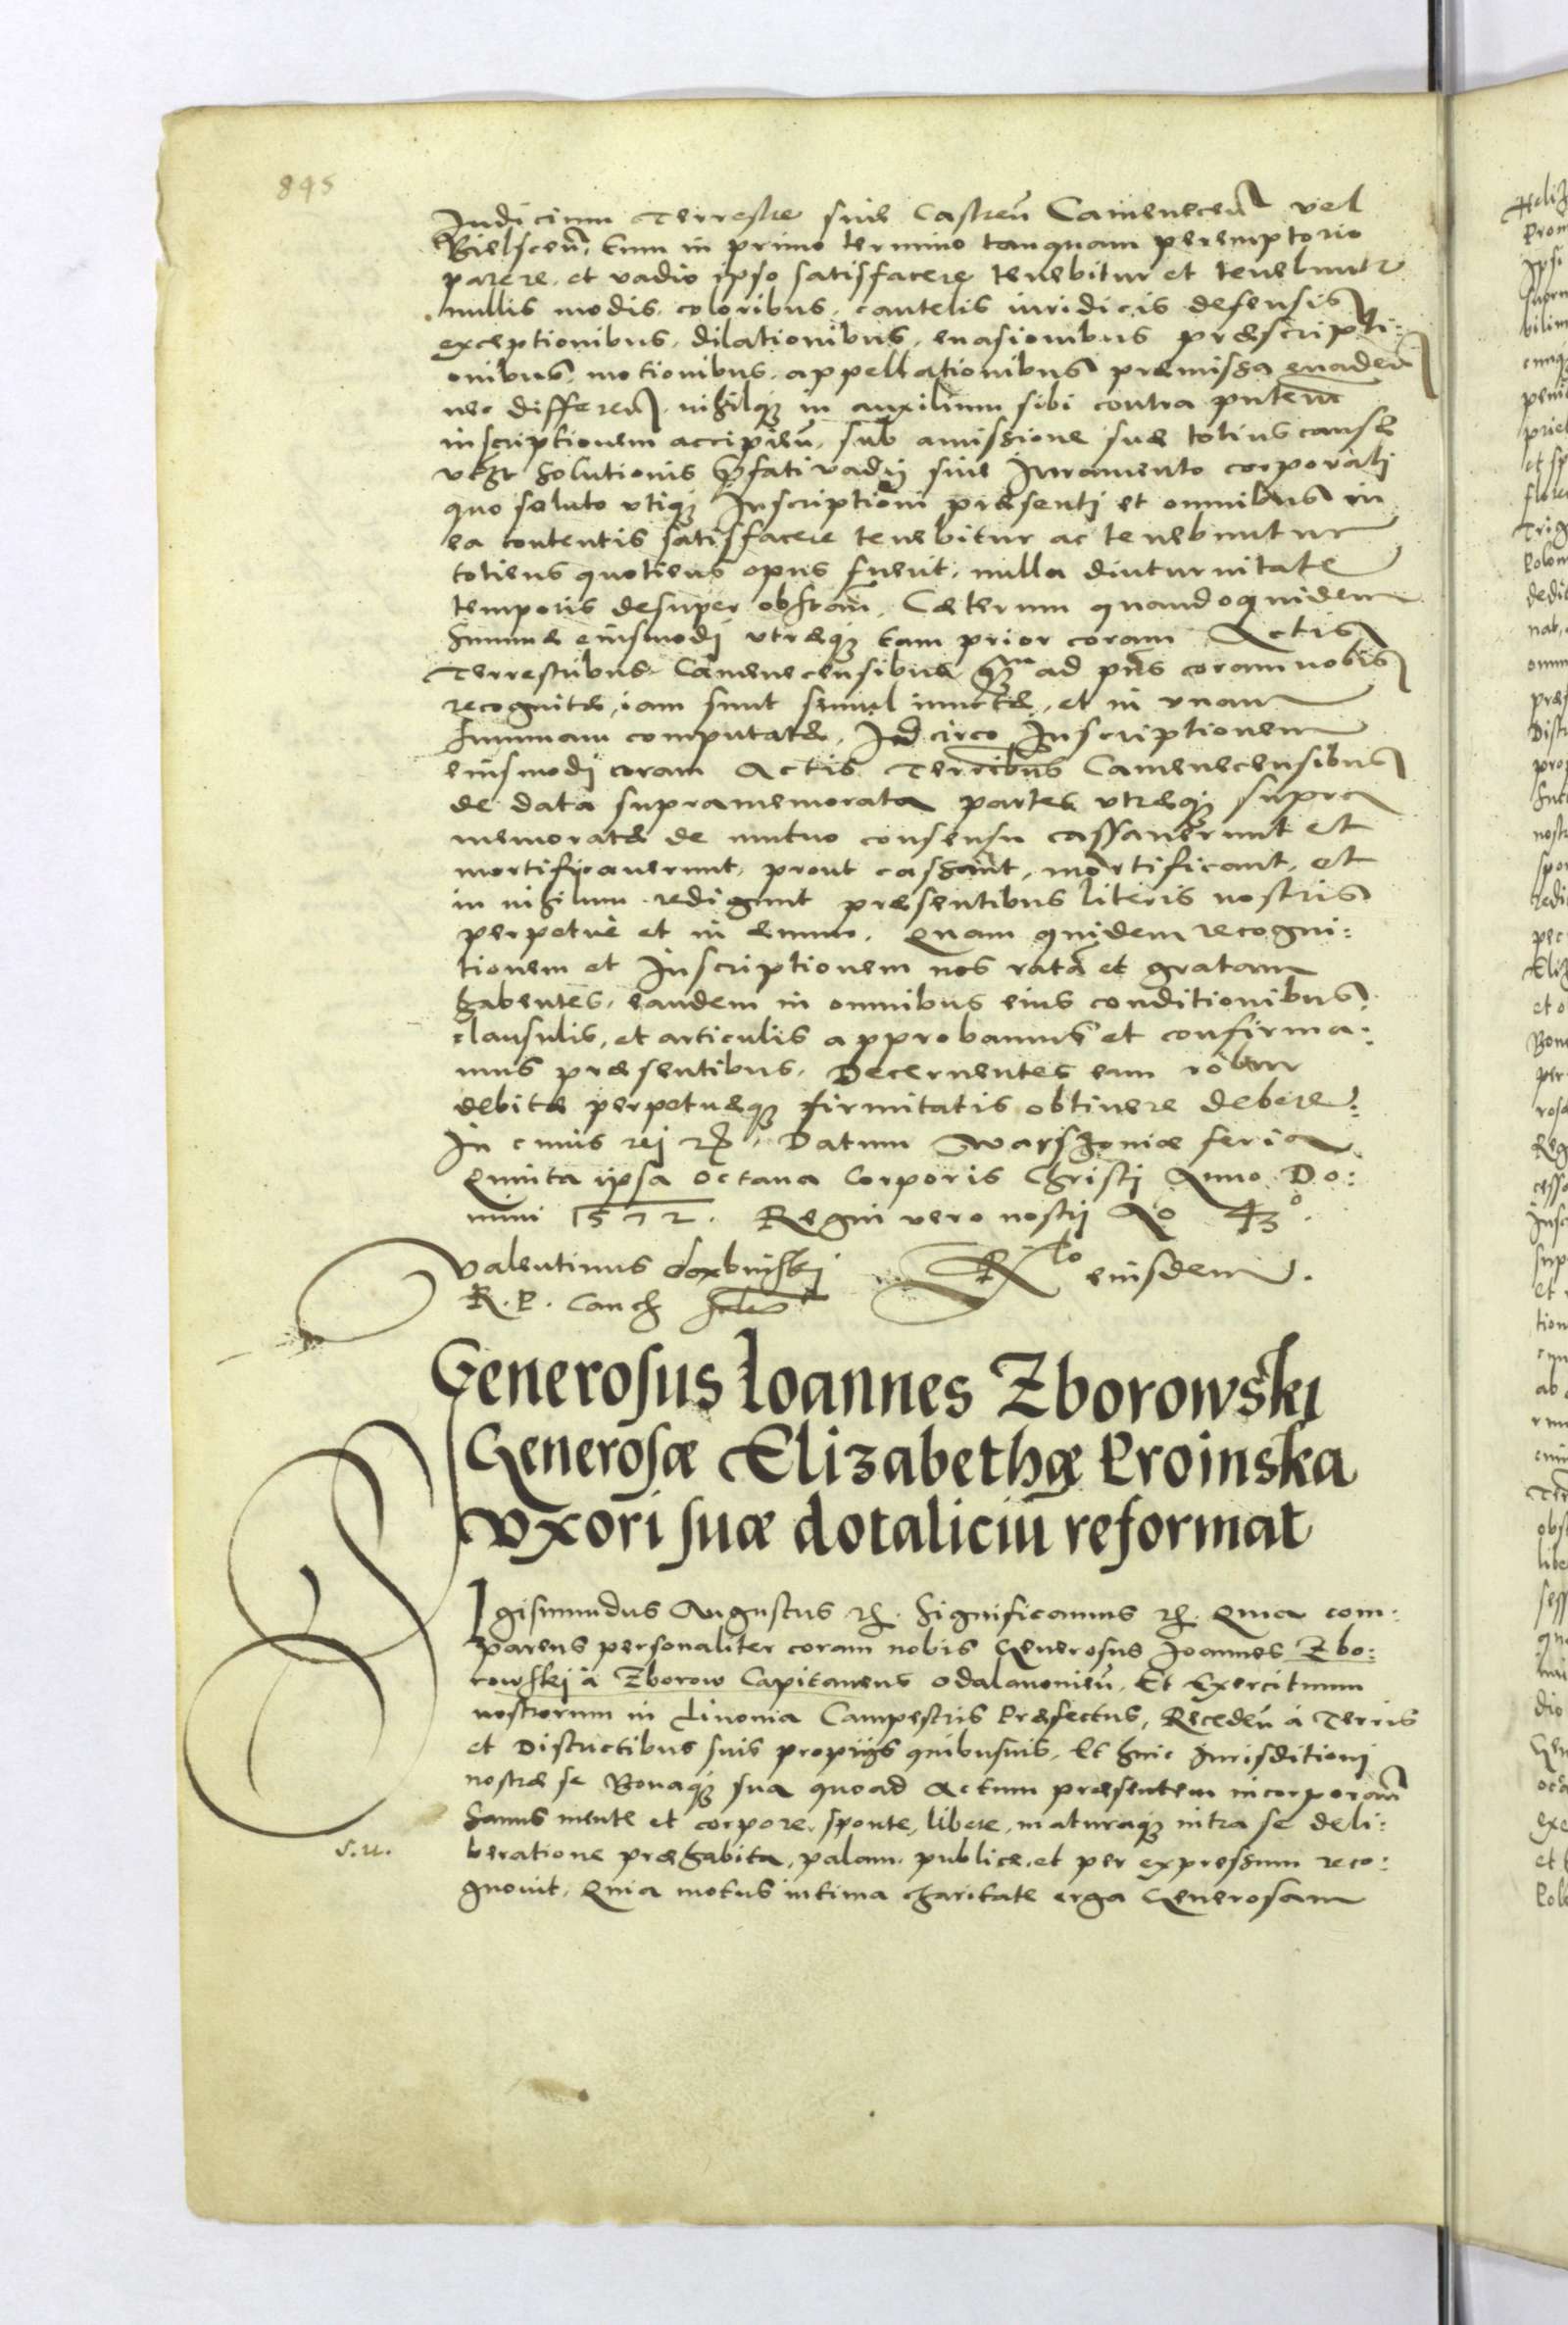 845
Judicium Terrestre sive Castreñ Camenecen̄ vel
Bielscen̄, Eum in primo termino tanquam peremptorio
parere, et vadio ipso satisfacere tenebitur et tenebuntur
nullis modis, coloribus, cautelis iuridicis defensis
exceptionibus, dilationibus, evasionibus præscripti:
onibus, motionibus, appellationibus præmissa evaden̄
nec differen̄, nihilq3 in auxilium sibi contra pñtem
inscriptionem accipien̄, sub amissione suæ totius causæ
solutionis p̃fati vadij sine Juramento corporali
quo soluto utiq3 Inscriptioni præsenti et omnibus in
ea contentis satisfacere tenebitur ac tenebuntur
totiens quotiens opus fuerit, nulla diuturnitate
temporis desuper obstañ. Cæterum quandoquidem
Summæ eiusmodi utræq3 tam prior coram Actis
Terrestribus Camenecensibus ad pñs coram nobis
recognitæ, iam sunt simul iunctæ, et in unam
summam computatæ, Idcirco Inscriptionem
eiusmodi coram Actis Terr̄ribus Camenecensibus
de data supramemorata partes utræq3 supra
memoratæ de mutuo consensu cassaverunt et
mortificaverunt, prout cassant, mortificant, et
in nihilum redigunt præsentibus literis nostris
perpetuè et in ævum. Quam quidem recogni:
tionem et Inscriptionem nos ratã et gratam
habentes, eandem in omnibus eius conditionibus
clausulis, et articulis approbamus et confirma:
mus præsentibus. Decernentes eam robur
debitæ perpetuæq3 firmitatis obtinere debere:
In cuius rej Datum Warszoviæ feria
Quinta ipsa octava Corporis Christi Anno Do:
mini 1572. Regni vero nostrj Ao 43o.
Valentinus dembinskj Rlo eiusdem.
R. P. Canc
Generosus Ioannes Zborowski
Generosæ Elizabethæ Proinska
Vxori suæ dotaliciũ reformat
Sigismundus Augustus Significamus Quia com:
parens personaliter coram nobis Generosus Joannes Zbo:
rowskj à Zborow Capitaneus Odalanovien̄, Et Exercituum
nostrorum in Livonia Campestris Præfectus, Receden̄ à Terris
et Districtibus suis proprijs quibusvis, Et huic Jurisditioni
nostræ se Bonaq3 sua quoad Actum præsentem incorporañ
Sanus mente et corpore, sponte, libere, maturaq3 intra se deli:
beratione præhabita, palam, publice, et per expressum reco:
gnovit, Quia motus intima charitate erga Generosam